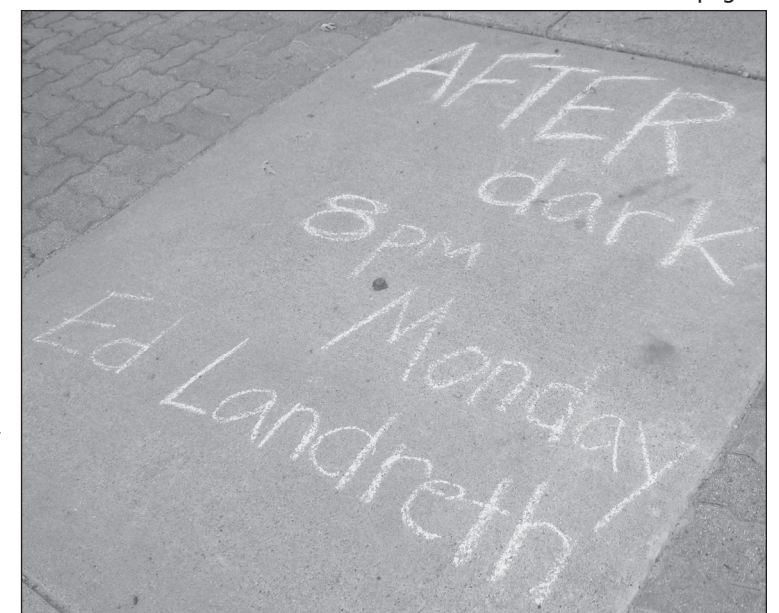 AFTER
dark
8PM
Monday
Ed Landreth